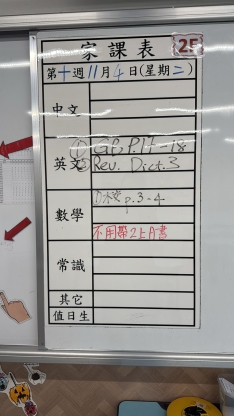 家課表 2E
第十週11月4日(星期二)
中文
英文
① GB P.17-18
② Rev. Dict.3
數學
①水堂 p.3-4
不用帶2上A書
常識
其它
值日生